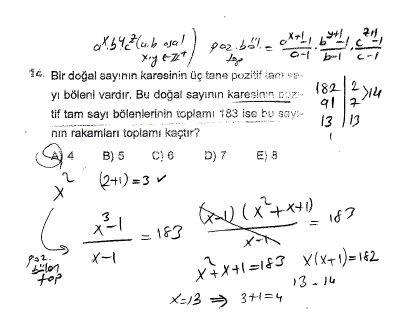 a^x.b^y.c^z (a.b asal x.y ∈ Z^+) poz.böl. top = a^(x+1)-1/a-1 . b^(y+1)-1/b-1 . c^(z+1)-1/c-1
14. Bir doğal sayının karesinin üç tane pozitif tam sa-
yı böleni vardır. Bu doğal sayının karesinin pozi-
tif tam sayı bölenlerinin toplamı 183 ise bu sayı-
nın rakamları toplamı kaçtır?
182 | 2 >14
91 | 7
13 | 13
1
A) 4 B) 5 C) 6 D) 7 E) 8
x^2 (2+1)=3 ✓
x^3-1/x-1 = 183 (x-1)(x^2+x+1)/x-1 = 183
poz. bölen top
x^2+x+1=183 x(x+1)=182
13-14
x=13 ⇒ 3+1=4